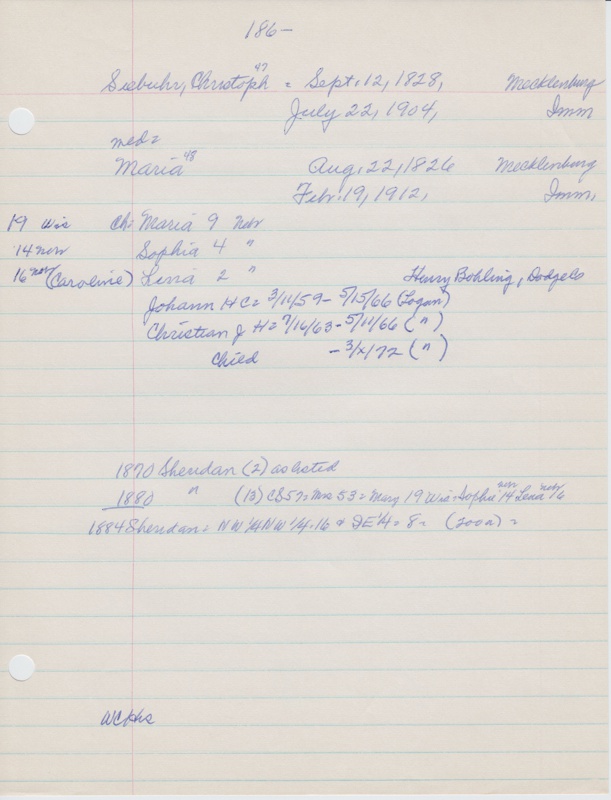 186-
Siebuhr, Christoph 47 = Sept. 12, 1828, Mecklenburg
July 22, 1904, Imm
med=
Maria 48 Aug. 22, 1826 Mecklenburg
Feb. 19, 1912, Imm.
19 Wis Ch: Maria 9 Neb
14 neb Sophia 4 "
16 neb (Caroline) Lena 2 " Henry Bohling, Dodgels
Johann H C = 3/11/59 - 5/15/66 (Logan)
Christian J H = 7/16/63 - 5/11/66 (")
Child - 3/x/72 (")
1870 Sheridan (2) as listed
1880 " (13) CS 57 = Mrs 53 = Mary 19 Wis = Sophia 14 neb Lena 16 neb
1884 Sheridan = NW 1/4 NW 1/4 - 16 & SE 1/4 = 8 = (200a) =
WCHs